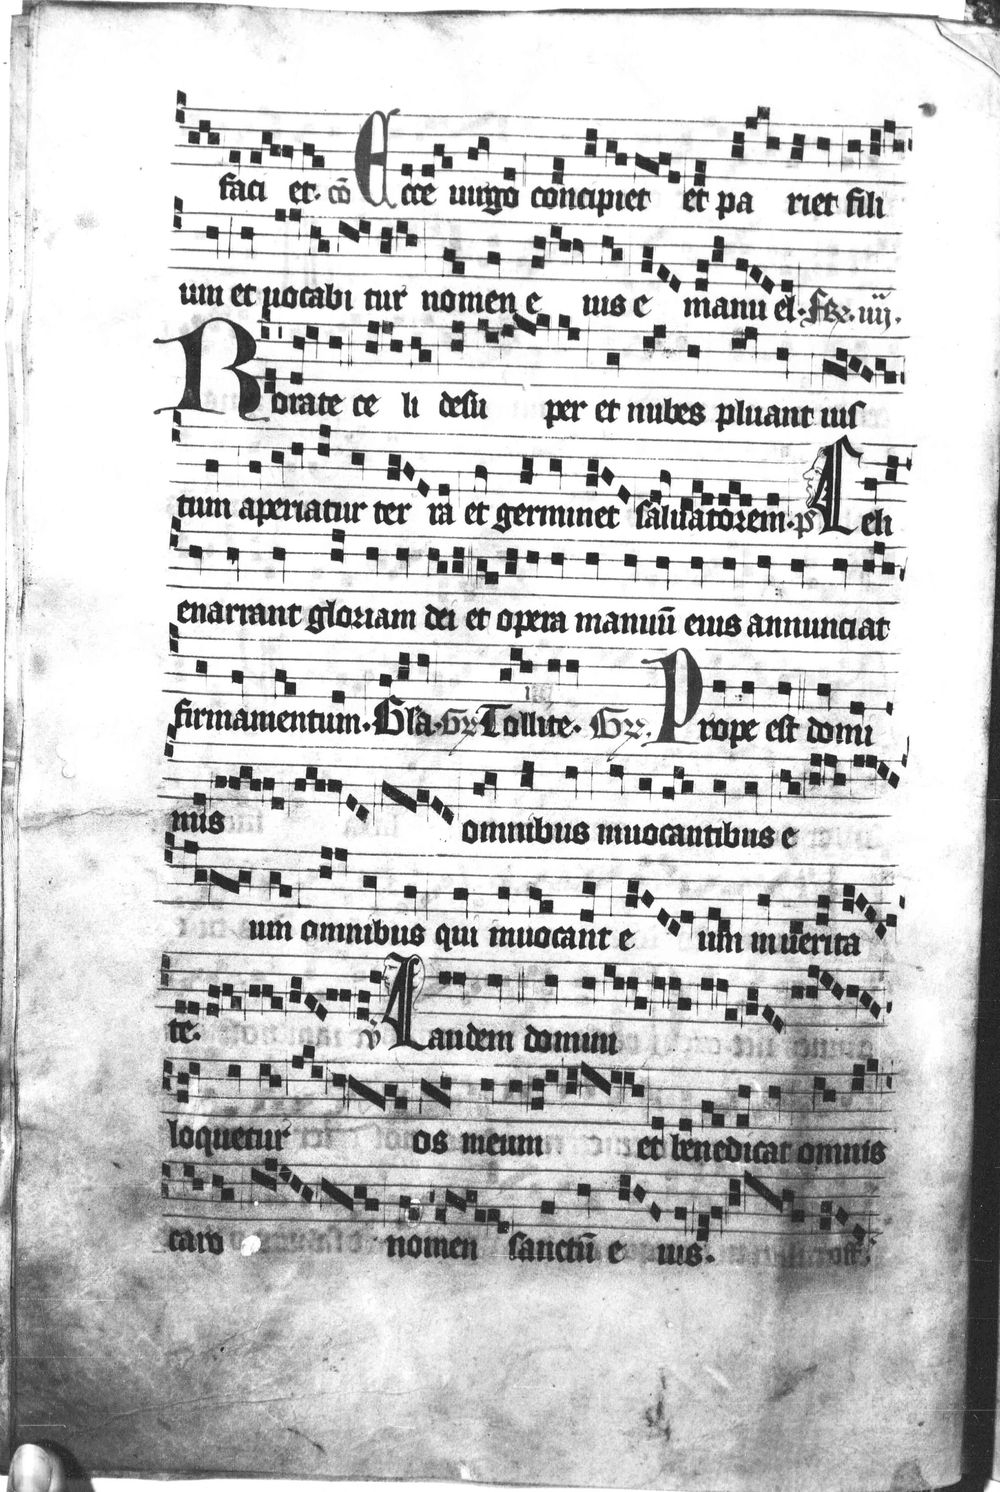 faci et. cõ Ecce uirgo concipiet et pa riet fili
um et uocabi tur nomen e ius e manu el. fer. iiij.
Rorate ce li desu per et nubes pluant ius
tum aperiatur ter ra et germinet saluatorem. ps Celi
enarrant gloriam dei et opera manuũ eius annunciat
firmamentum. Gl'a. Gr Tollite. Gr. Prope est domi
nus omnibus inuocantibus e
um omnibus qui inuocant e um in uerita
te. v̉ Laudem domini
loquetur os meum et benedicat omnis
caro nomen sanctũ e ius.